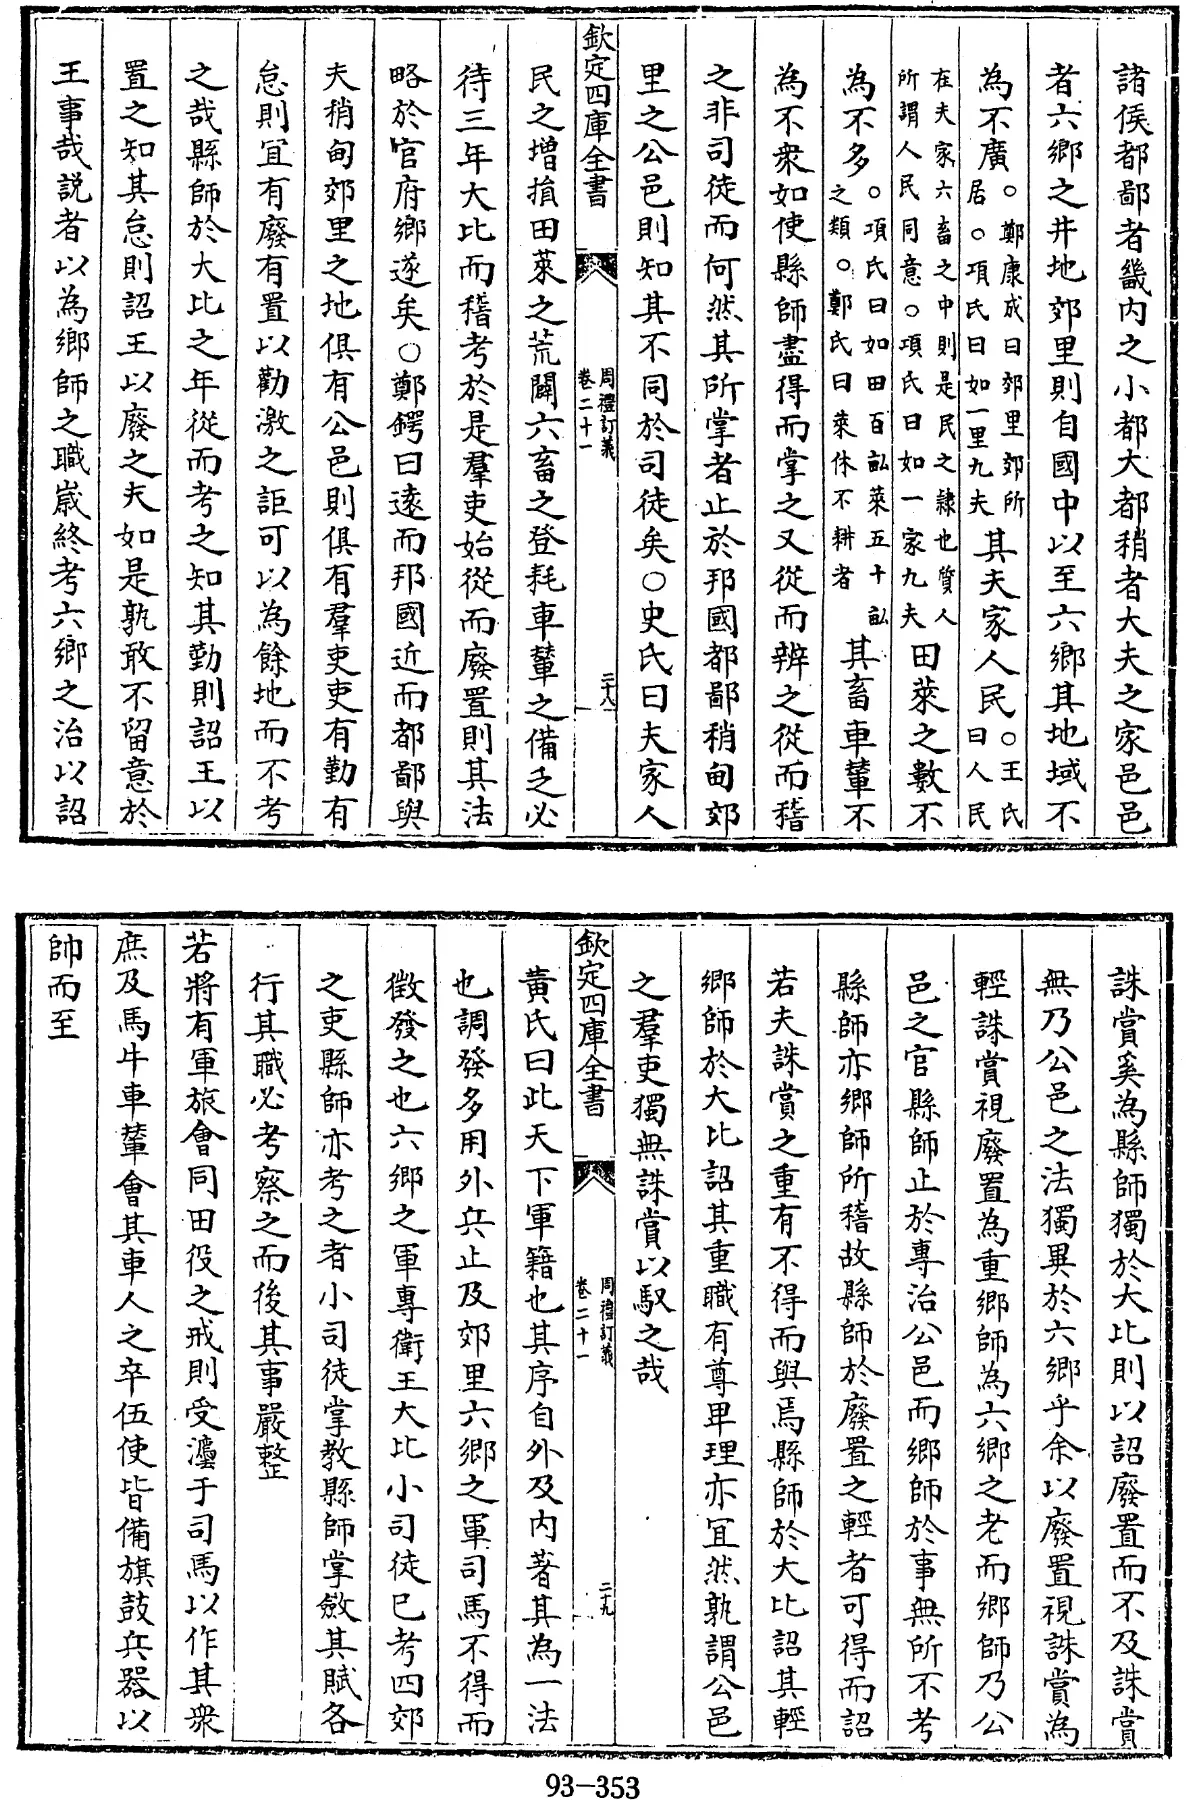 諸侯都鄙者畿内之小都大都稍者大夫之家邑邑
者六鄉之井地郊里則自國中以至六鄉其地域不
為不廣○鄭康成曰郊里郊所居○項氏曰如一里九夫其夫家人民○王氏曰人民
在夫家六畜之中則是民之隸也質人所謂人民同意○項氏曰如一家九夫田萊之數不
為不多○項氏曰如田百畝萊五十畝之類○鄭氏曰萊休不耕者其畜車輦不
為不衆如使縣師盡得而掌之又從而辨之從而稽
之非司徒而何然其所掌者止於邦國都鄙稍甸郊
里之公邑則知其不同於司徒矣○史氏曰夫家人
欽定四庫全書
周禮訂義
卷二十一
二十八
民之增損田萊之荒闢六畜之登耗車輦之備乏必
待三年大比而稽考於是羣吏始從而廢置則其法
略於官府鄉遂矣○鄭鍔曰遠而邦國近而都鄙與
夫稍甸郊里之地俱有公邑則俱有羣吏吏有勤有
怠則宜有廢有置以勸激之詎可以為餘地而不考
之哉縣師於大比之年從而考之知其勤則詔王以
置之知其怠則詔王以廢之夫如是孰敢不留意於
王事哉説者以為鄉師之職嵗終考六鄉之治以詔
誅賞奚為縣師獨於大比則以詔廢置而不及誅賞
無乃公邑之法獨異於六鄉乎余以廢置視誅賞為
輕誅賞視廢置為重鄉師為六鄉之老而鄉師乃公
邑之官縣師止於專治公邑而鄉師於事無所不考
縣師亦鄉師所稽故縣師於廢置之輕者可得而詔
若夫誅賞之重有不得而與焉縣師於大比詔其輕
鄉師於大比詔其重職有尊卑理亦宜然孰謂公邑
之羣吏獨無誅賞以馭之哉
欽定四庫全書
周禮訂義
卷二十一
二十九
黄氏曰此天下軍籍也其序自外及内著其為一法
也調發多用外兵止及郊里六鄉之軍司馬不得而
徵發之也六鄉之軍專衛王大比小司徒已考四郊
之吏縣師亦考之者小司徒掌教縣師掌斂其賦各
行其職必考察之而後其事嚴整
若將有軍旅會同田役之戒則受灋于司馬以作其衆
庶及馬牛車輦會其車人之卒伍使皆備旗鼓兵器以
帥而至
93-353